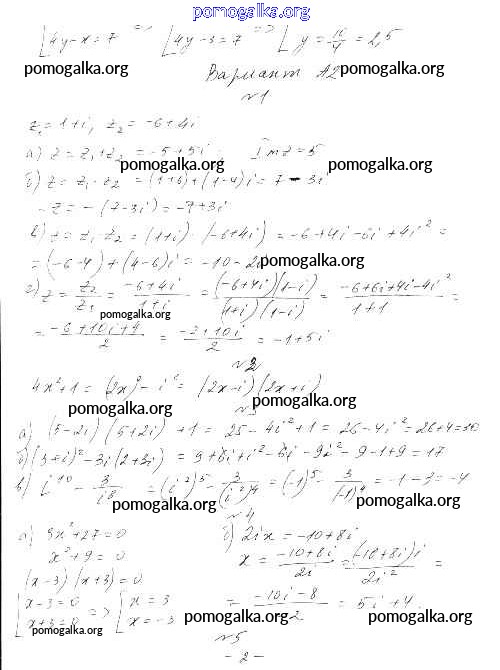 pomogalka.org
[4y-x=7 => [4y-3=7 => [y=10/4=2,5
pomogalka.org pomogalka.org
Вариант А2
№1
z₁=1+i, z₂=-6+4i
а) z=z₁+z₂=-5+5i, Im z=5
pomogalka.org pomogalka.org
б) z=z₁-z₂=(1+6)+(1-4)i=7-3i
-z=-(7-3i)=-7+3i
в) z=z₁·z₂=(1+i)·(-6+4i)=-6+4i-6i+4i²=
=(-6-4)+(4-6)i=-10-2i
pomogalka.org
г) z=z₂/z₁=(-6+4i)/(1+i)=(-6+4i)(1-i)/(1+i)(1-i)=(-6+6i+4i-4i²)/(1+1)=
pomogalka.org
=(-6+10i+4)/2=(-2+10i)/2=-1+5i
№2
4x²+1=(2x)²-i²=(2x-i)(2x+i)
pomogalka.org pomogalka.org
а) (5-2i)(5+2i)+1=25-4i²+1=26-4i²=26+4=30
б) (3+i)²-3i(2+3i)=9+6i+i²-6i-9i²=9-1+9=17
pomogalka.org pomogalka.org
в) i¹⁰-3/i⁸=(i²)⁵-3/(i²)⁴=(-1)⁵-3/(-1)⁴=-1-3=-4
pomogalka.org
№4
а) 3x²+27=0
x²+9=0
(x-3)(x+3)=0
[x-3=0 => [x=3
x+3=0 x=-3
б) 2ix=-10+8i
x=(-10+8i)/2i=(-10+8i)i/2i²=
=(-10i-8)/-2=5i+4
pomogalka.org pomogalka.org pomogalka.org
№5
- 2 -